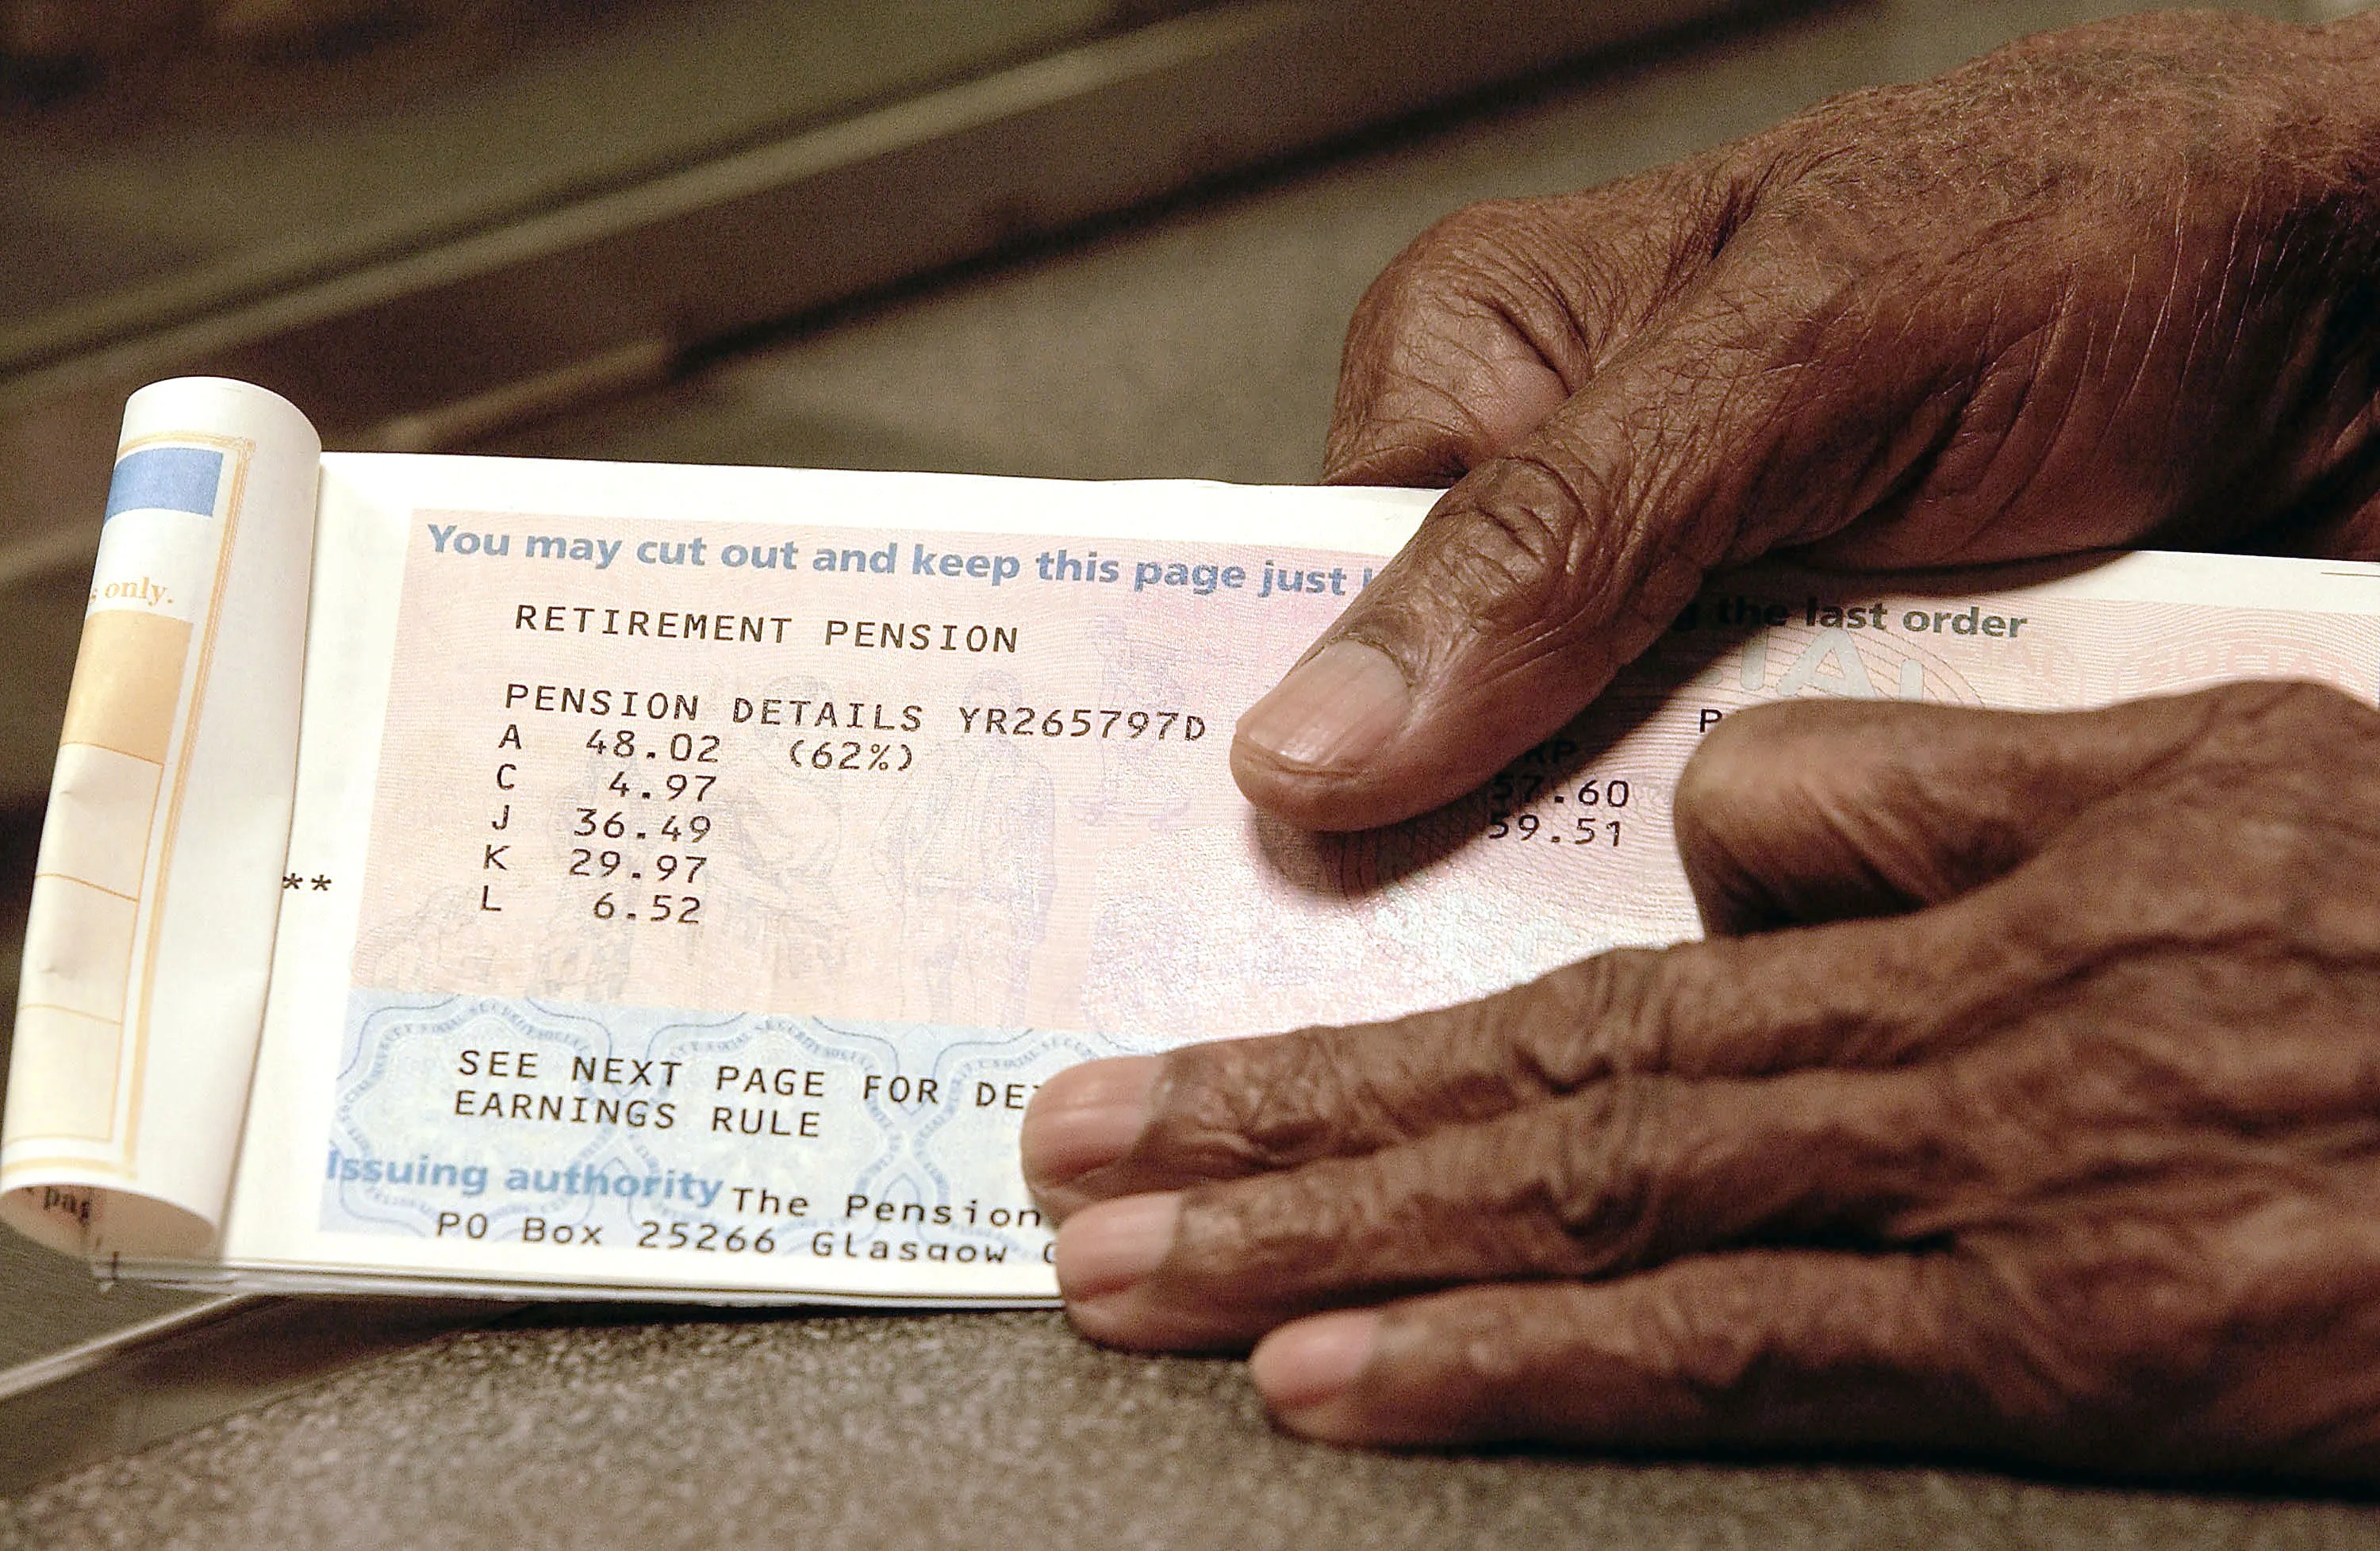 only.
You may cut out and keep this page just
the last order
RETIREMENT PENSION
PENSION DETAILS YR265797D
A 48.02 (62%)
C 4.97 57.60
J 36.49 59.51
K 29.97
**
L 6.52
SEE NEXT PAGE FOR
EARNINGS RULE
Issuing authority The Pension
PO Box 25266 Glasgow